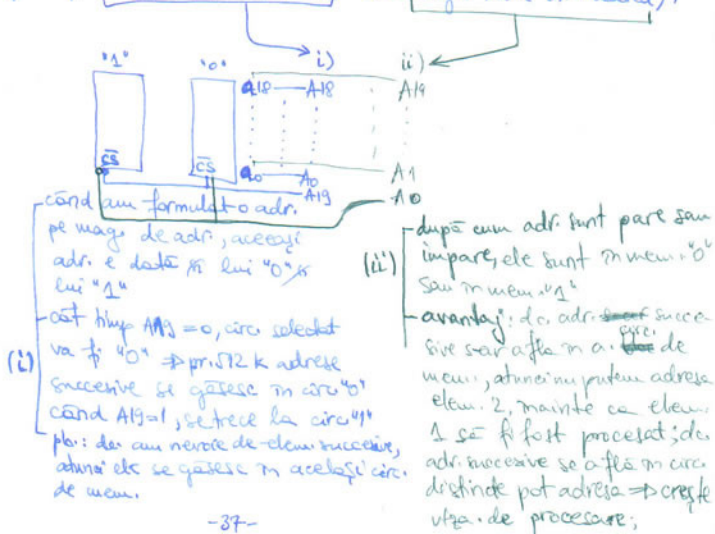 i) ii)
"1" "0" a18 — A18 A19
CS CS a0 — A0 A1
A19 A0
(i)
când am formulat o adr.
pe mag. de adr., aceeași
adr. e dată și lui "0" și
lui "1"
cât timp A19 = 0, circ. selectat
va fi "0" => pr. 512 k adrese
succesive se găsesc în circ. "0"
când A19=1, se trece la circ. "1"
pb.: dc. am nevoie de elem. succesive,
atunci ele se găsesc în același circ.
de mem.
(ii)
după cum adr. sunt pare sau
impare, ele sunt în mem. "0"
sau în mem. "1"
avantaj: dc. adr. succe-
sive s-ar afla în a. circ. de
mem., atunci nu putem adresa
elem. 2, înainte ca elem.
1 să fi fost procesat; dc.
adr. succesive se află în circ.
distincte pot adresa => crește
vtza. de procesare;
-37-